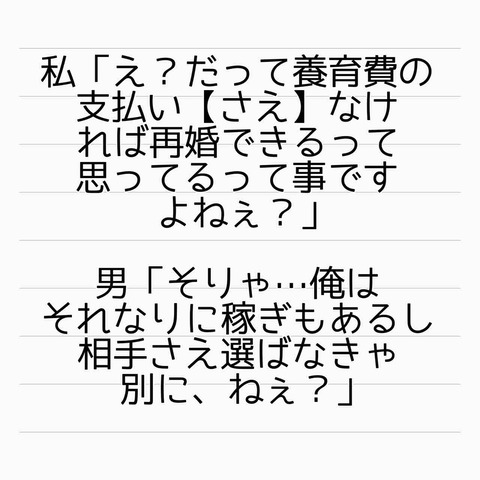 私「え？だって養育費の
支払い【さえ】なけ
れば再婚できるって
思ってるって事です
よねぇ？」
男「そりゃ…俺は
それなりに稼ぎもあるし
相手さえ選ばなきゃ
別に、ねぇ？」